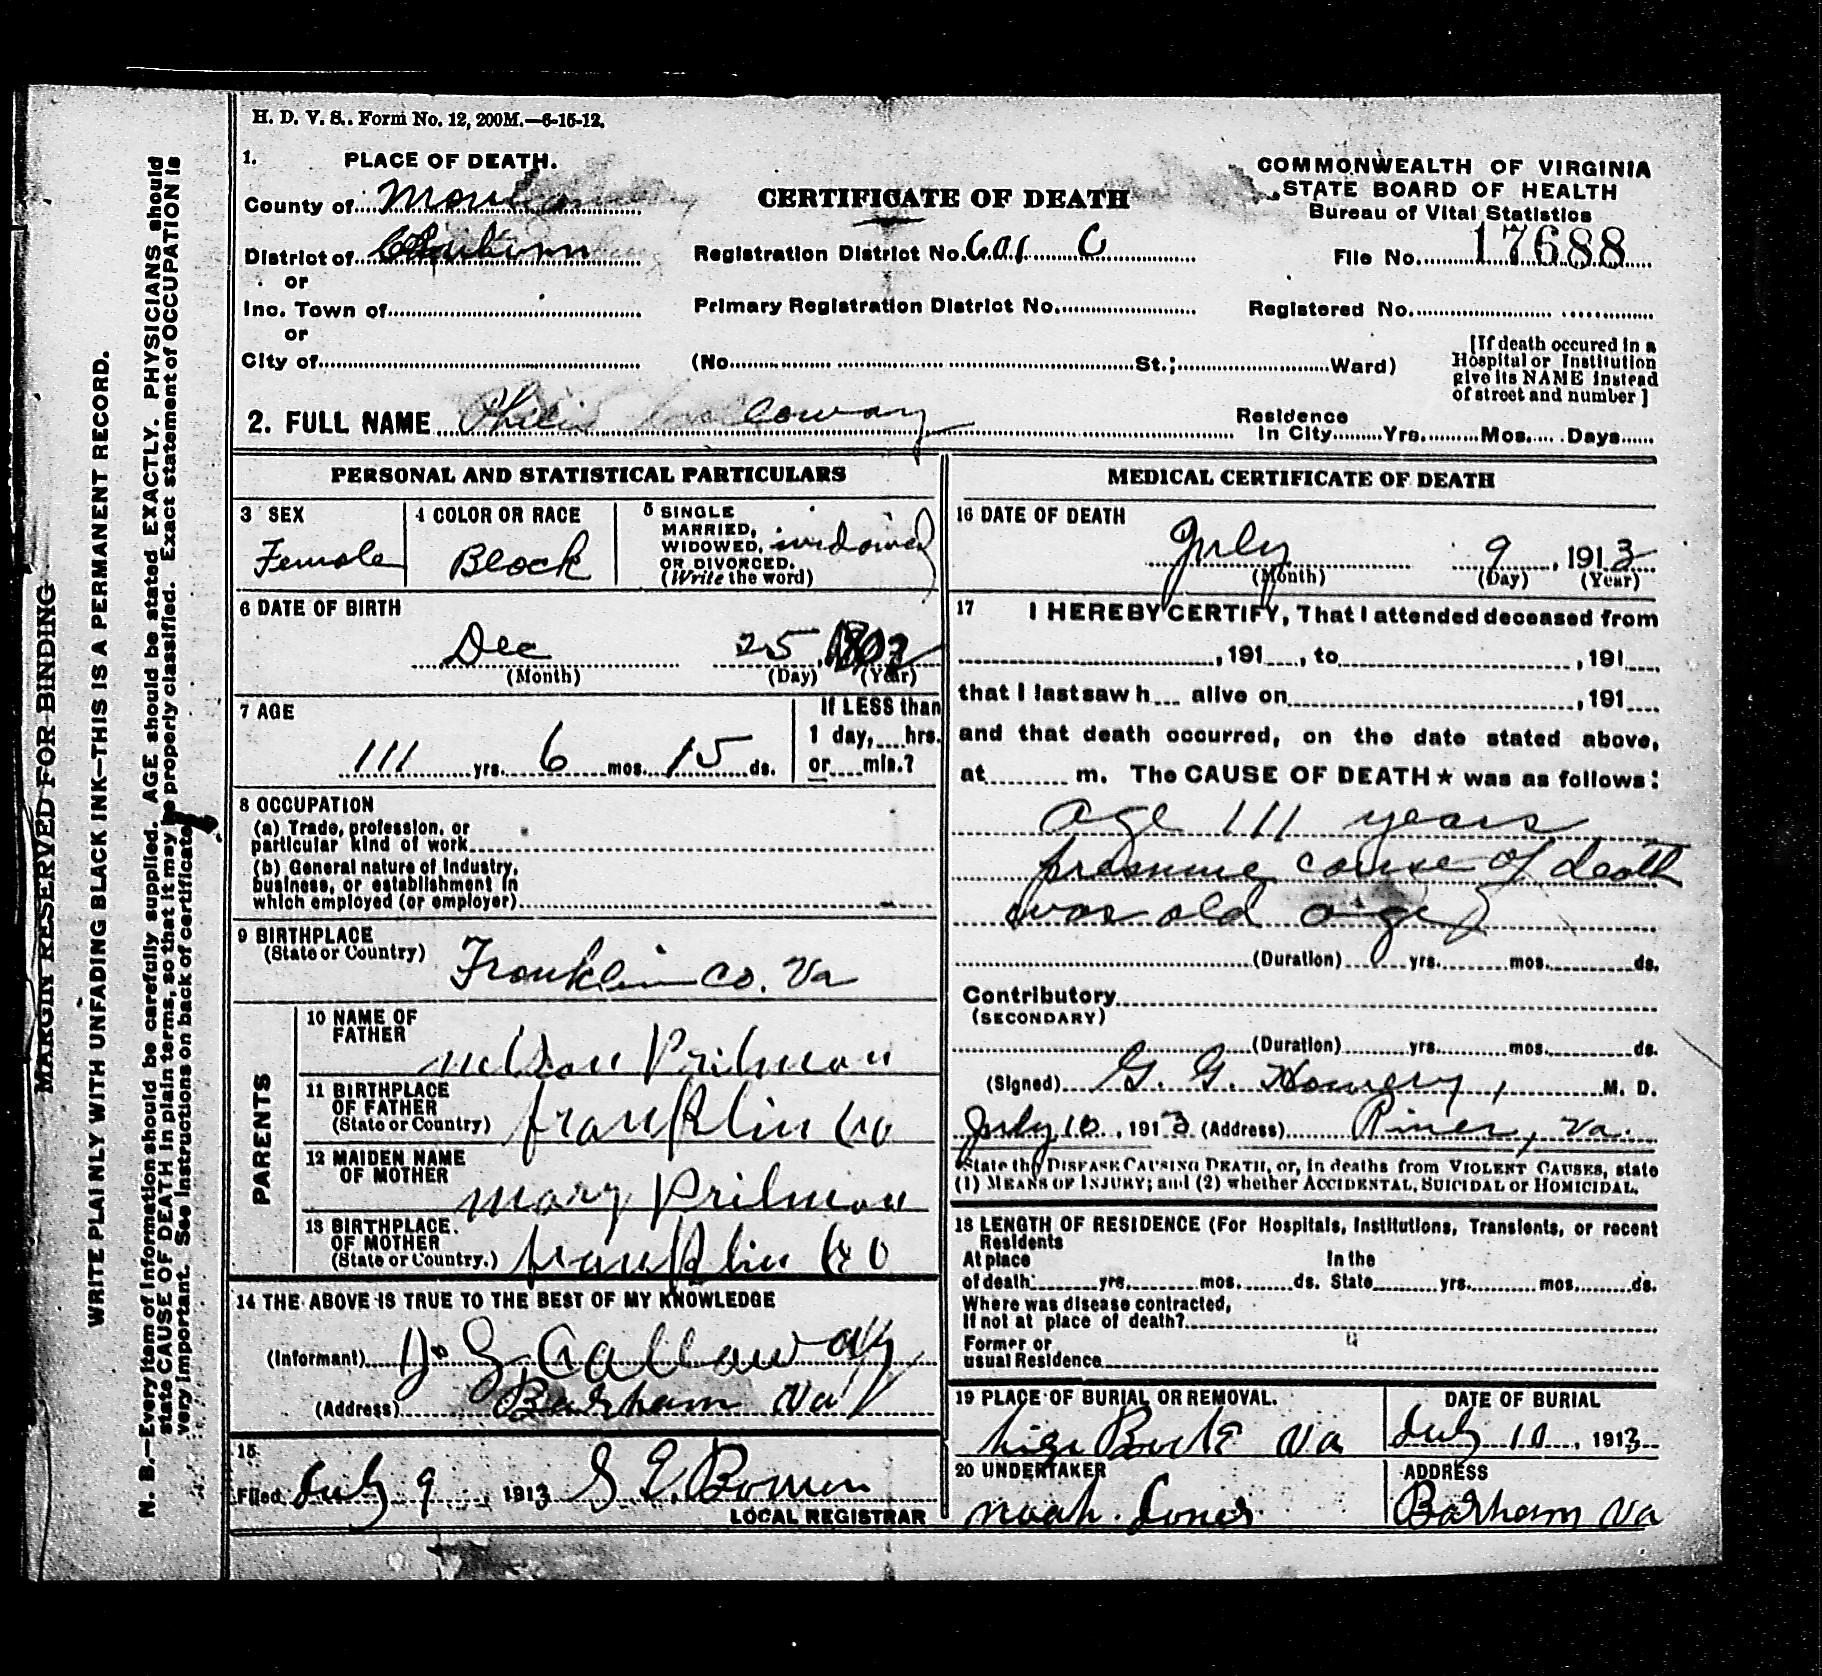 H. D. V. S.. Form No. 12, 200M.—6-15-12.
1. PLACE OF DEATH.
County of
District of
or
Inc. Town of
or
City of
CERTIFICATE OF DEATH
Registration District No. 601 C
Primary Registration District No.
(No. St.; Ward)
COMMONWEALTH OF VIRGINIA
STATE BOARD OF HEALTH
Bureau of Vital Statistics
File No. 17688
Registered No.
[If death occured in a
Hospital or Institution
give its NAME instead
of street and number]
2. FULL NAME
Residence
In City Yrs. Mos. Days
PERSONAL AND STATISTICAL PARTICULARS
3 SEX
Female
4 COLOR OR RACE
Black
5 SINGLE
MARRIED,
WIDOWED, widowed
OR DIVORCED.
(Write the word)
6 DATE OF BIRTH
Dec 25,
(Month) (Day) (Year)
7 AGE
111 yrs. 6 mos. 15 ds.
If LESS than
1 day, hrs.
or min.?
8 OCCUPATION
(a) Trade, profession, or
particular kind of work
(b) General nature of Industry,
business, or establishment in
which employed (or employer)
9 BIRTHPLACE
(State or Country) Franklin Co. Va
PARENTS
10 NAME OF
FATHER
11 BIRTHPLACE
OF FATHER
(State or Country) franklin Co
12 MAIDEN NAME
OF MOTHER
mary
13 BIRTHPLACE.
OF MOTHER
(State or Country.) franklin Co
14 THE ABOVE IS TRUE TO THE BEST OF MY KNOWLEDGE
(Informant) Callaway
(Address) Barham Va
15.
Filed July 9, 1913
LOCAL REGISTRAR
MEDICAL CERTIFICATE OF DEATH
16 DATE OF DEATH
July 9, 1913
(Month) (Day) (Year)
17 I HEREBY CERTIFY, That I attended deceased from
, 191 , to , 191
that I last saw h alive on , 191
and that death occurred, on the date stated above,
at m. The CAUSE OF DEATH★ was as follows:
age 111 years
presume cause of death
was old age
(Duration) yrs. mos. ds.
Contributory
(SECONDARY)
(Duration) yrs. mos. ds.
(Signed) G. G. M. D.
July 10, 1913 (Address) Riner, Va.
*State the DISEASE CAUSING DEATH, or, in deaths from VIOLENT CAUSES, state
(1) MEANS OF INJURY; and (2) whether ACCIDENTAL, SUICIDAL or HOMICIDAL.
18 LENGTH OF RESIDENCE (For Hospitals, Institutions, Transients, or recent
Residents
At place In the
of death yrs. mos. ds. State yrs. mos. ds.
Where was disease contracted,
If not at place of death?
Former or
usual Residence
19 PLACE OF BURIAL OR REMOVAL.
Va
DATE OF BURIAL
July 10, 1913
20 UNDERTAKER
noah Jones
ADDRESS
Barham Va
MARGIN RESERVED FOR BINDING
WRITE PLAINLY WITH UNFADING BLACK INK—THIS IS A PERMANENT RECORD.
N. B.—Every item of information should be carefully supplied. AGE should be stated EXACTLY. PHYSICIANS should
state CAUSE OF DEATH in plain terms, so that it may be properly classified. Exact statement of OCCUPATION is
very important. See Instructions on back of certificate.